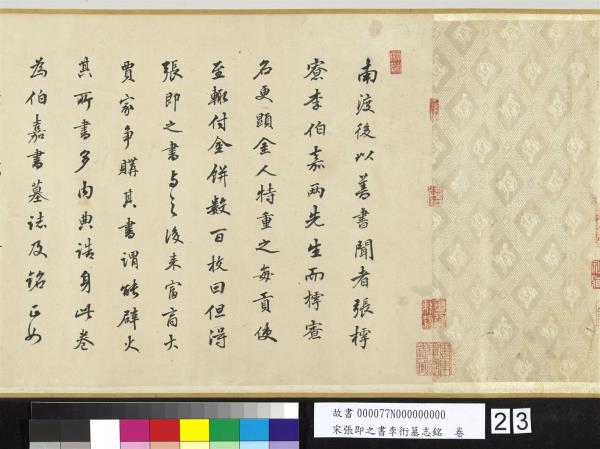 南渡後以善書聞者張樗
寮李伯嘉兩先生而樗寮
名更顯金人特重之每貢使
至輙付金餅數百枚曰但得
張即之書與之後来富商大
賈家爭購其書謂能辟火
其所書多內典誥身此卷
為伯嘉書墓誌及銘正如
故書 000077N000000000
宋張即之書李衎墓志銘 卷
23